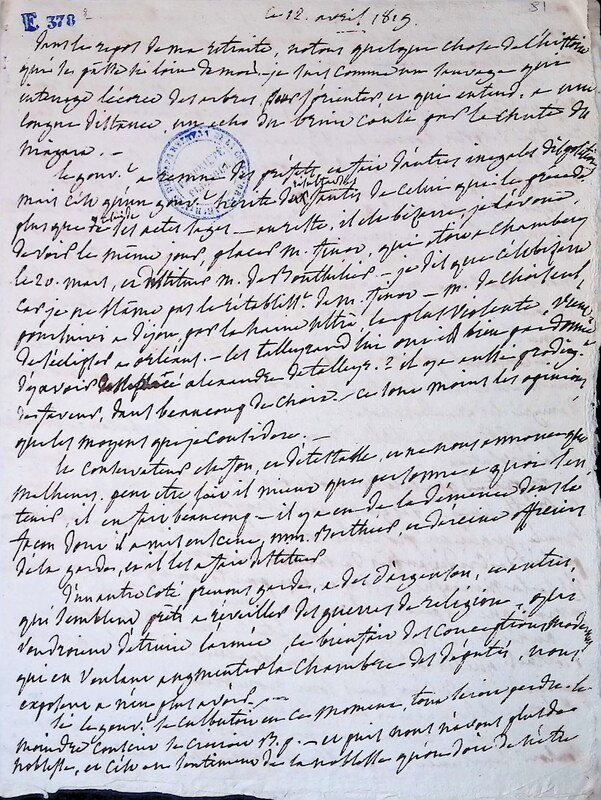 E 378
81
le 12. avril 1819.
dans le repos de ma retraite, notons quelque chose de l'histoire
qui se passe si loin de moi – je suis comme un sauvage qui
interroge l'écorce des arbres pour s'orienter et qui entend, à une
longue distance, un echo du bruit causé par la chute du
niagara. –
le gouv.t a nommé des préfets, et fait d'autres
mais c'est qu'un gouv.t hérite des fautes de celui qui le précède
plus que de ses actes sages – au reste, il est bizarre, je l'avoue,
de voir le même jour, placer m. finot, qui etoit a Chambery
le 20. mars, et destituer m. de – je dis que c'est bizarre
car je ne blâme pas le rétabliss.t de m. finot – m. de choiseul
poursuivi a dijon par la haine ultrà, la plus violente, vient
de s'eclipser a orléans. – les talleyrand lui ont ils bien pardonné
d'avoir alexandre de talleyr. ? il y a aussi
de faveur, dans beaucoup de choix – ce sont moins les opinions
que les moyens que je considère. –
le Conservateur est fou, et détestable, et ne nous annonce que
malheurs. peut etre sait il mieux que personne a quoi s'en
tenir, il en fait beaucoup – il y a eu de la démence dans la
façon dont il a mis en scène, mm. Berthier et officiers
de la garde, et il les a fait destituer
d'un autre coté prenons garde, a des d'argenson, et autres,
qui semblent prêts a réveiller des guerres de religion, qui
voudroient détruire l'armée, ce bienfait des conceptions modernes
qui en voulant augmenter la chambre des députés, nous
exposent a n'en plus avoir. –
si le gouv.t se culbutoit en ce moment, tout seroit perdu – le
moindre – et puis nous n'avons plus de
noblesse, et c'est un sentiment de la noblesse qu'on doit de n'être